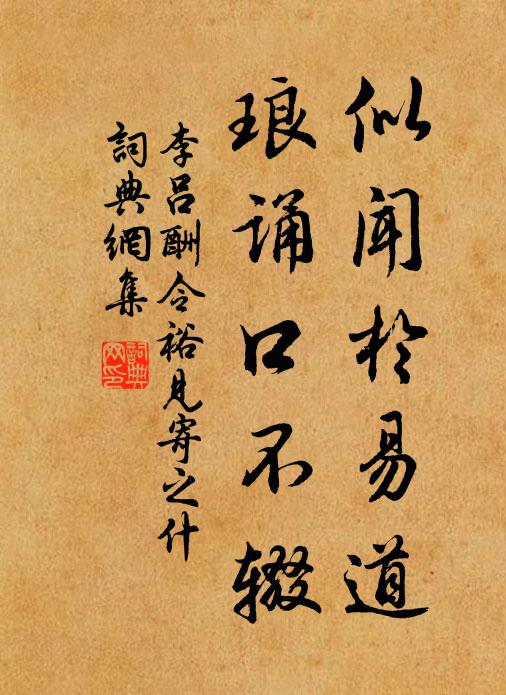 似闻於易道
琅诵口不辍
李吕酬令裕见寄之什
詞典網集
詞典網印